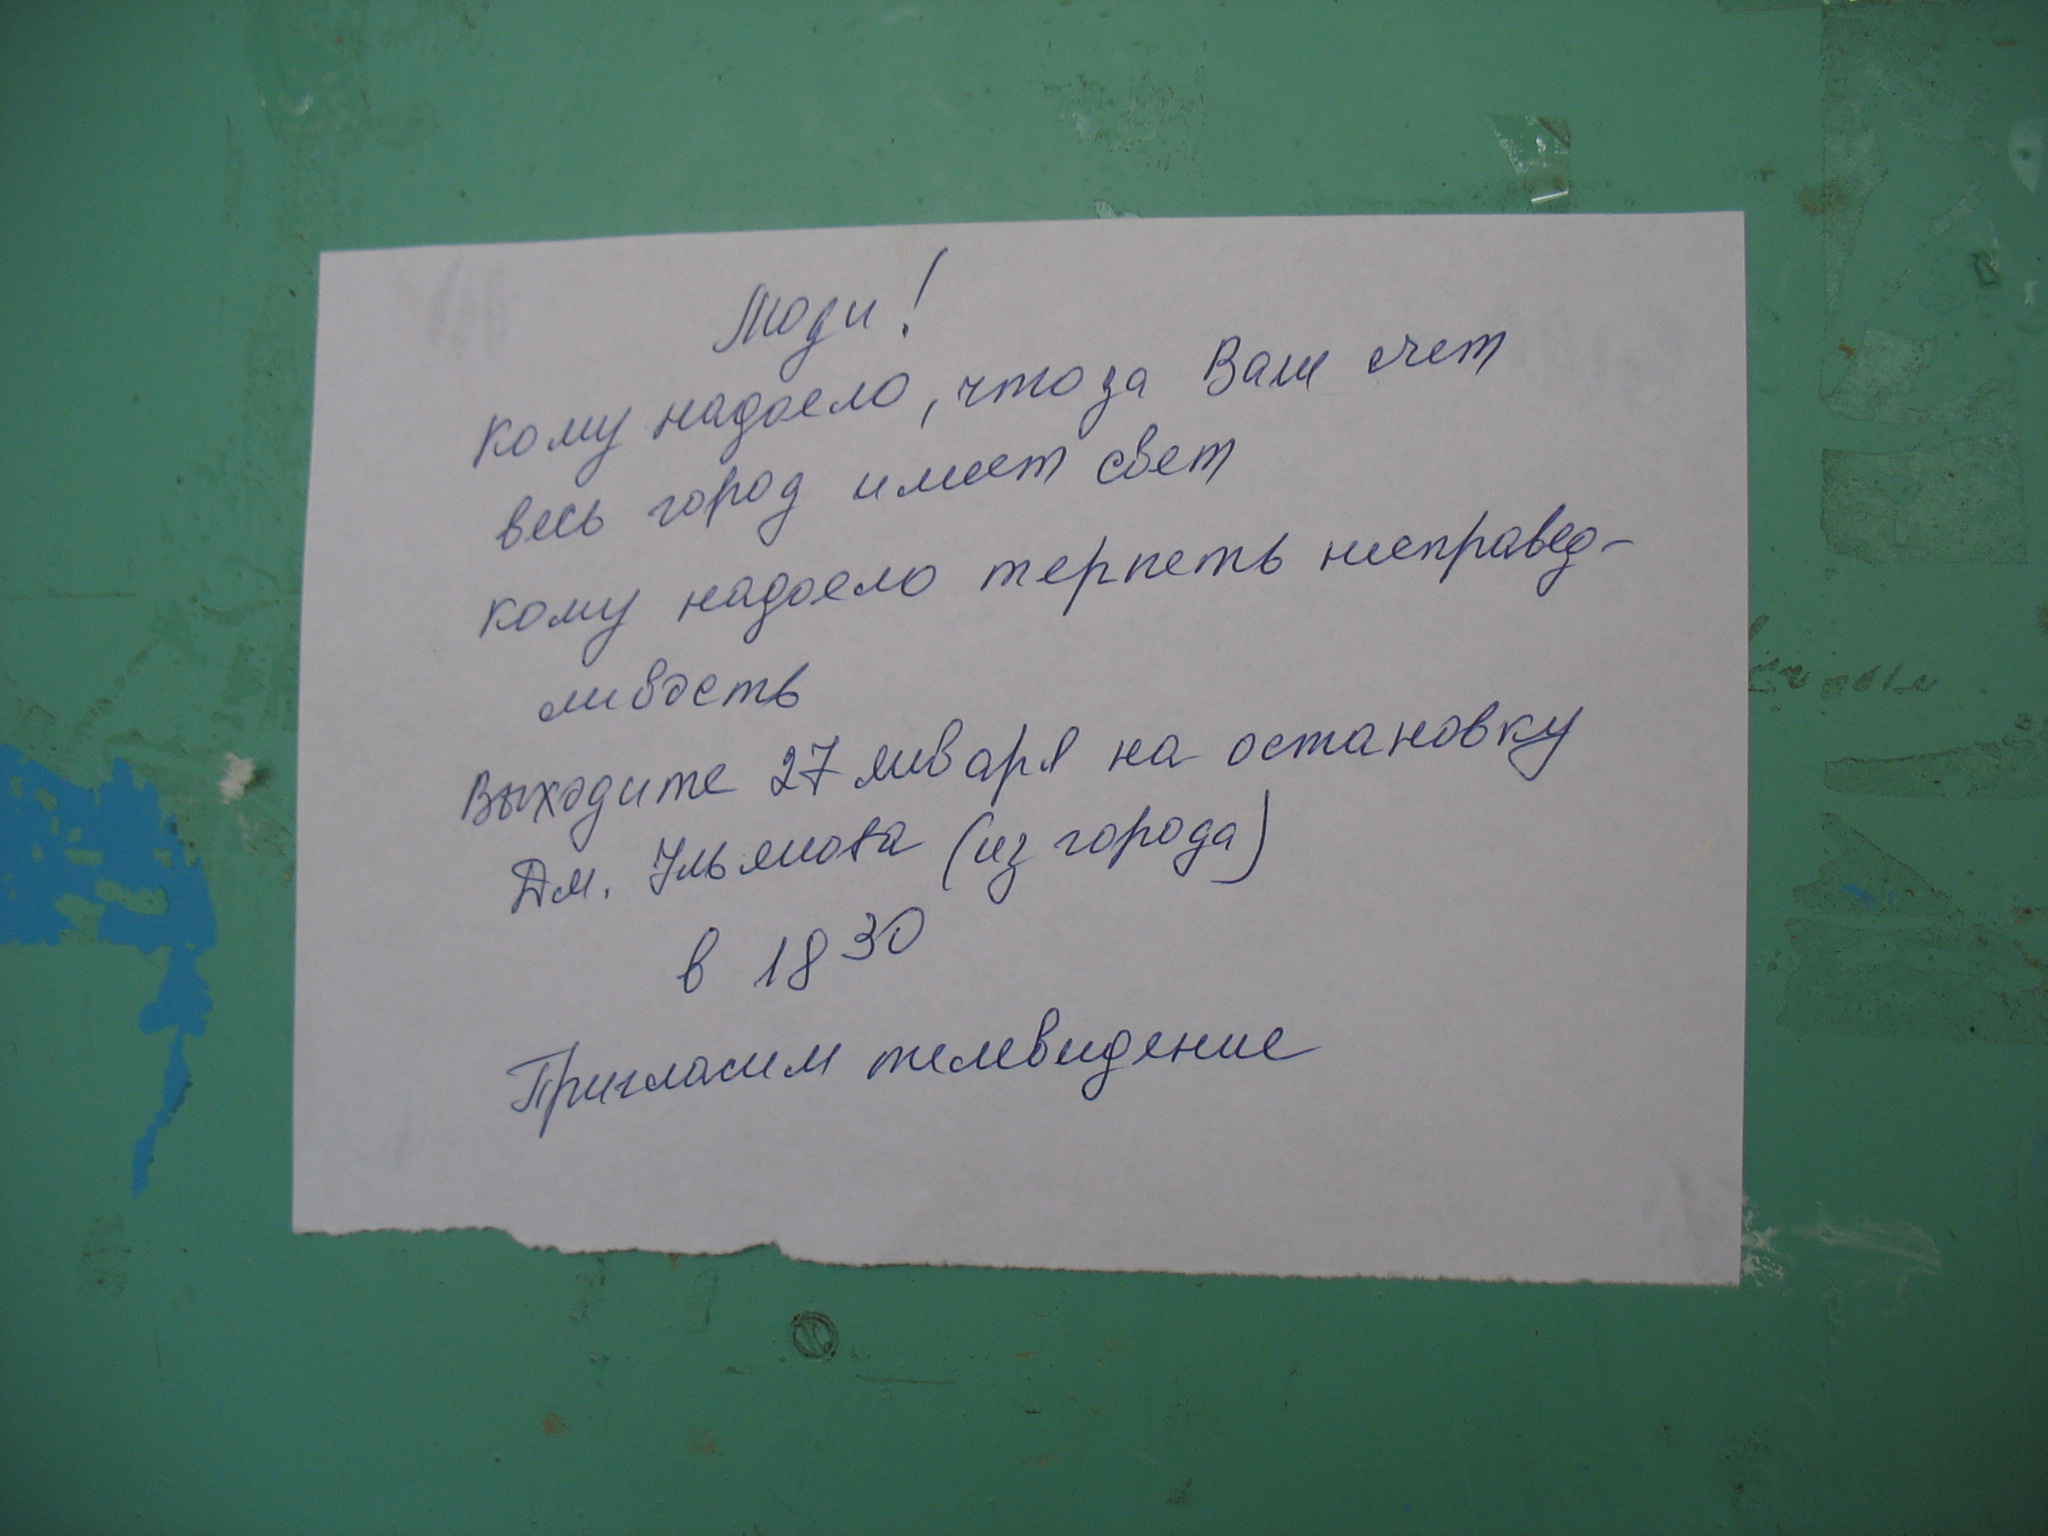 Люди!
Кому надоело, что за Ваш счет
весь город имеет свет
Кому надоело терпеть несправед-
ливость
Выходите 27 января на остановку
Дм. Ульянова (из города)
в 18 30
Пригласим телевидение